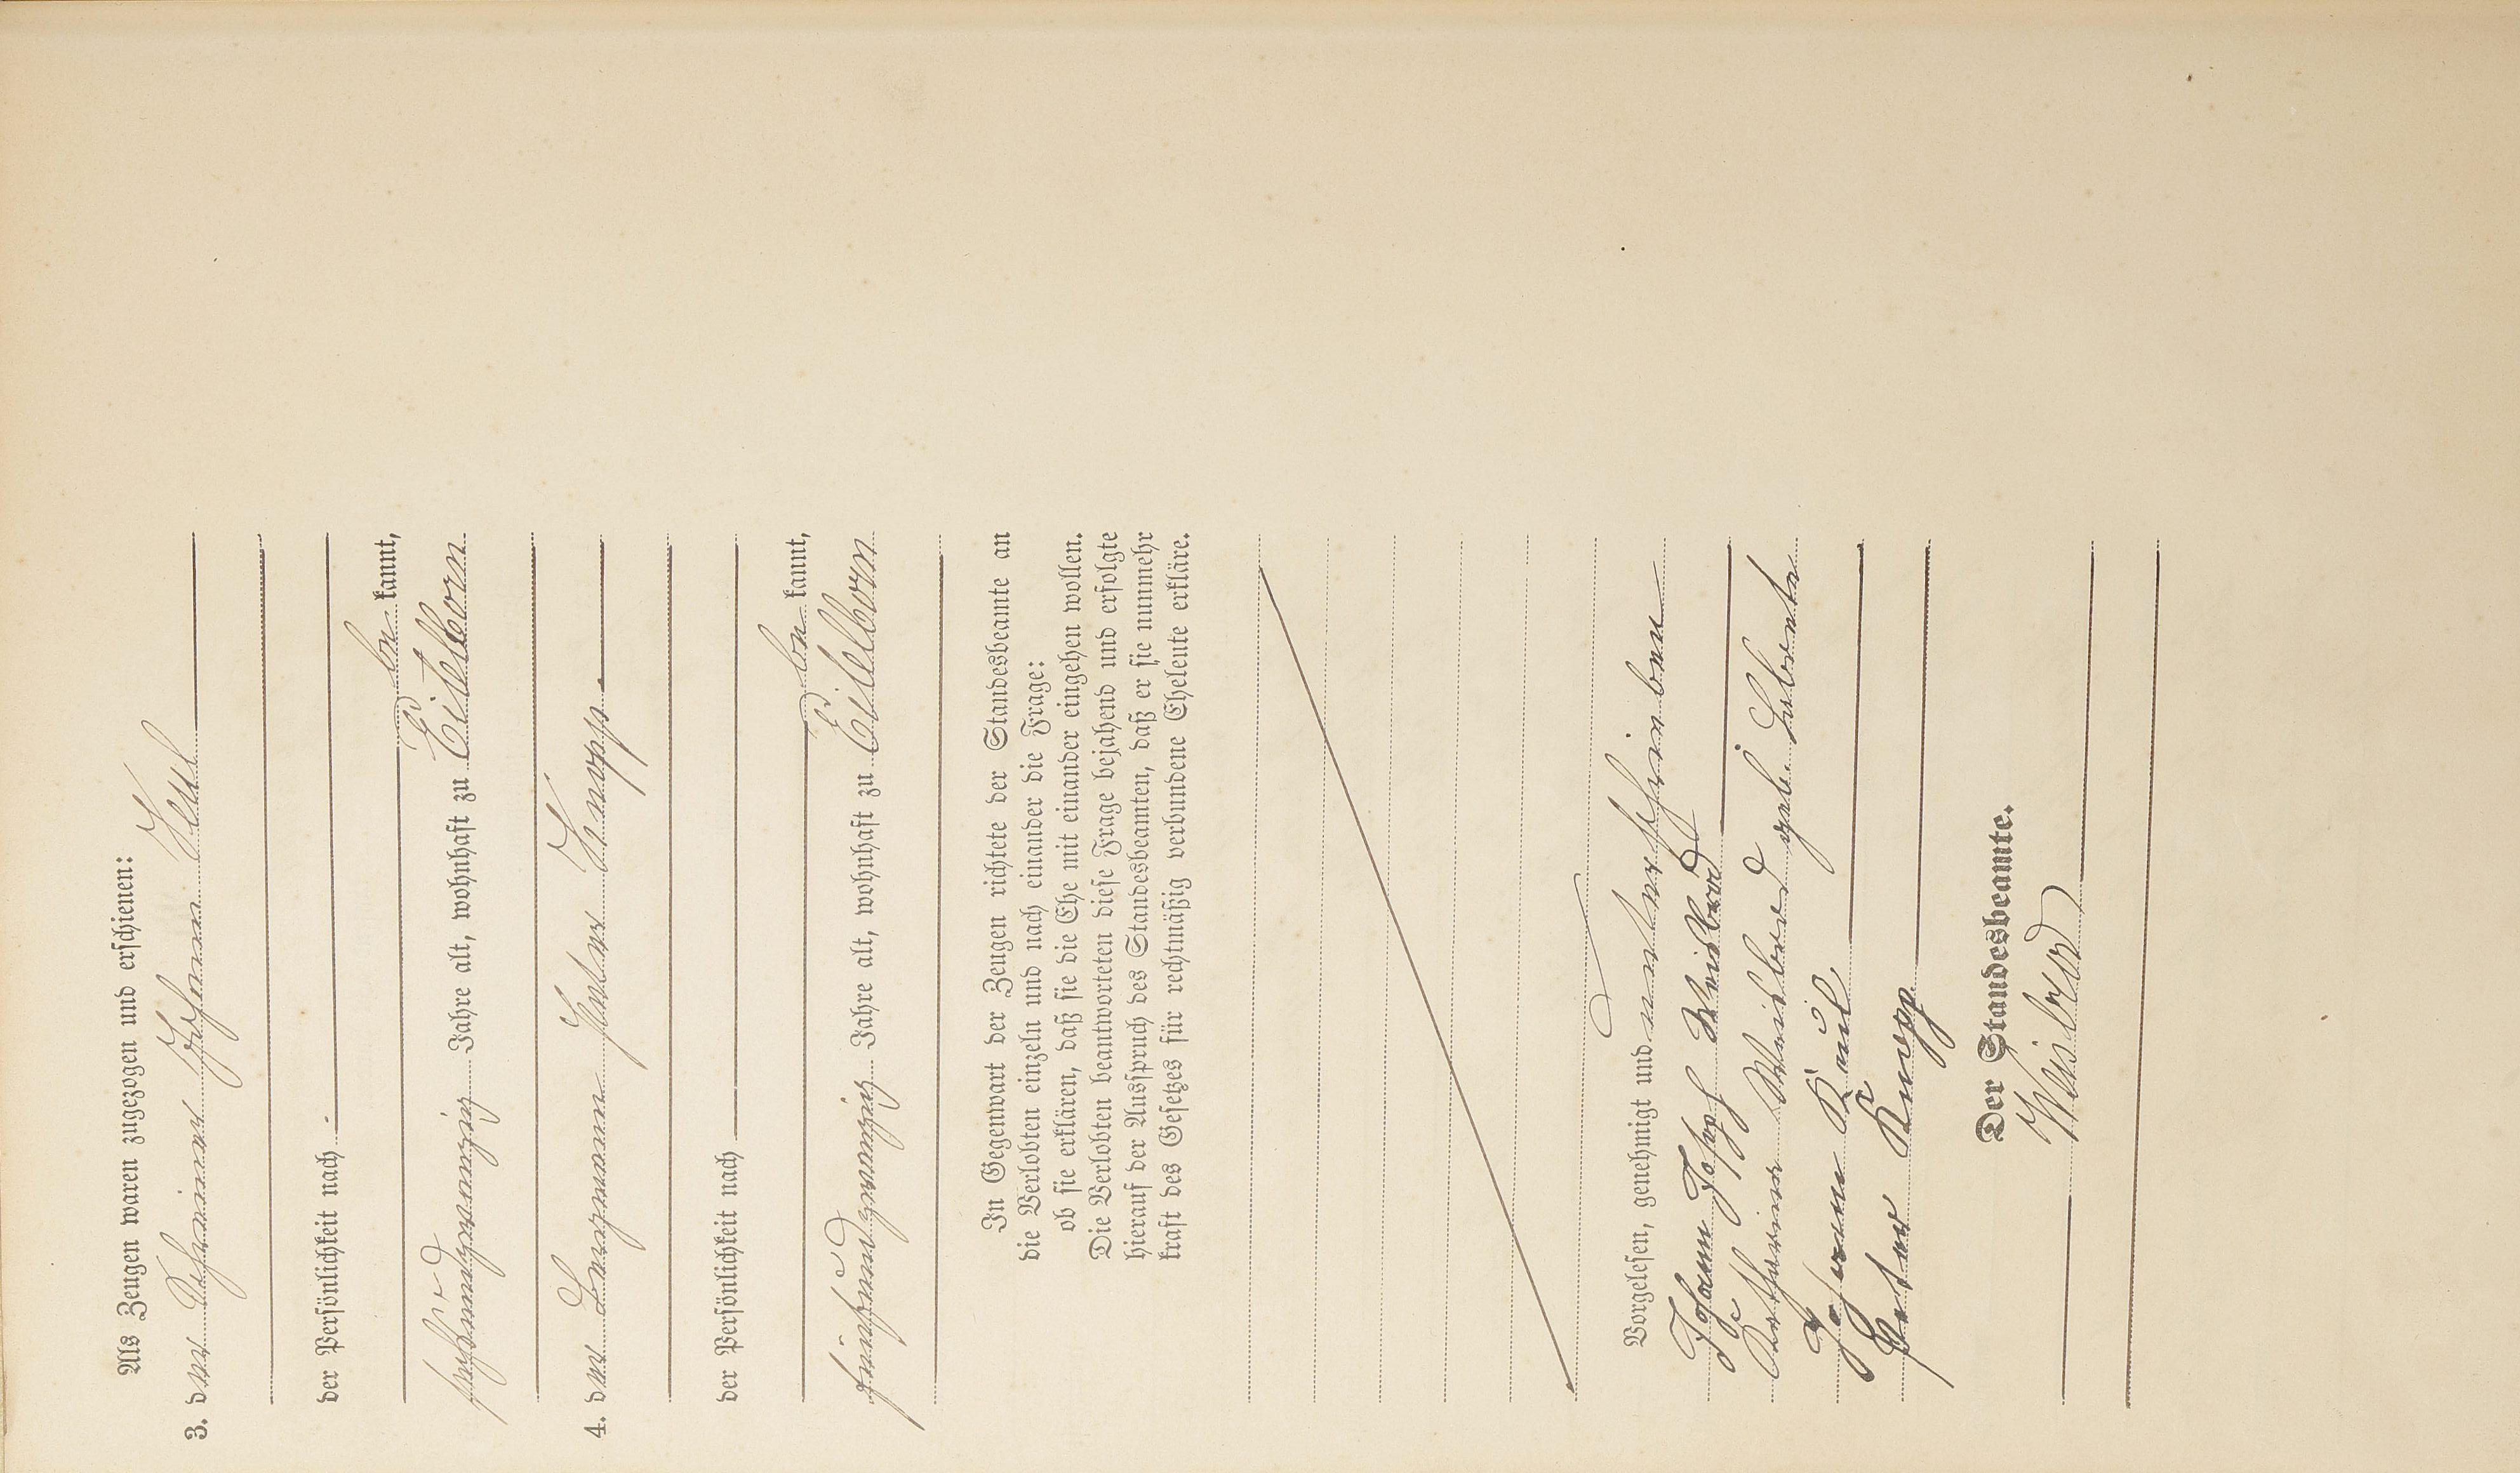 Als Zeugen waren zugezogen und erschienen:
3. der Schreiner Johann Keul
der Persönlichkeit nach
be kannt,
sechsundzwanzig Jahre alt, wohnhaft zu Eitelborn
4. der Bergmann Peter Knopp.
der Persönlichkeit nach
be kannt,
fünfundzwanzig Jahre alt, wohnhaft zu Eitelborn
In Gegenwart der Zeugen richtete der Standesbeamte an
die Verlobten einzeln und nach einander die Frage:
ob sie erklären, daß sie die Ehe mit einander eingehen wollen.
Die Verlobten beantworteten diese Frage bejahend und erfolgte
hierauf der Ausspruch des Standesbeamten, daß er sie nunmehr
kraft des Gesetzes für rechtmäßig verbundene Eheleute erkläre.
Vorgelesen, genehmigt und unterschrieben
Johann Josef Weisbrod
Katharina Weisbrod geb.
Johann Kaul
Peter Knopp.
Der Standesbeamte.
Weisbrod